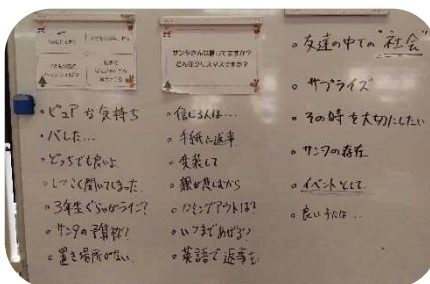 サンタさんは信じてますか?
どんなクリスマスですか?
・ピュアな気持ち
・バレた…
・どっちでも良いよ
・しつこく聞いてしまった
・3年生ぐらいがライン?
・サンタの予算額?
・置き場所がない
・信じる人は…
・手紙に返事
・変装して
・親が悲しむから
・カミングアウトは?
・いつまであげる?
・英語で返事を
・友達の中での"社会"
・サプライズ
・その時を大切にしたい
・サンタの存在
・イベントとして
・良い子には…